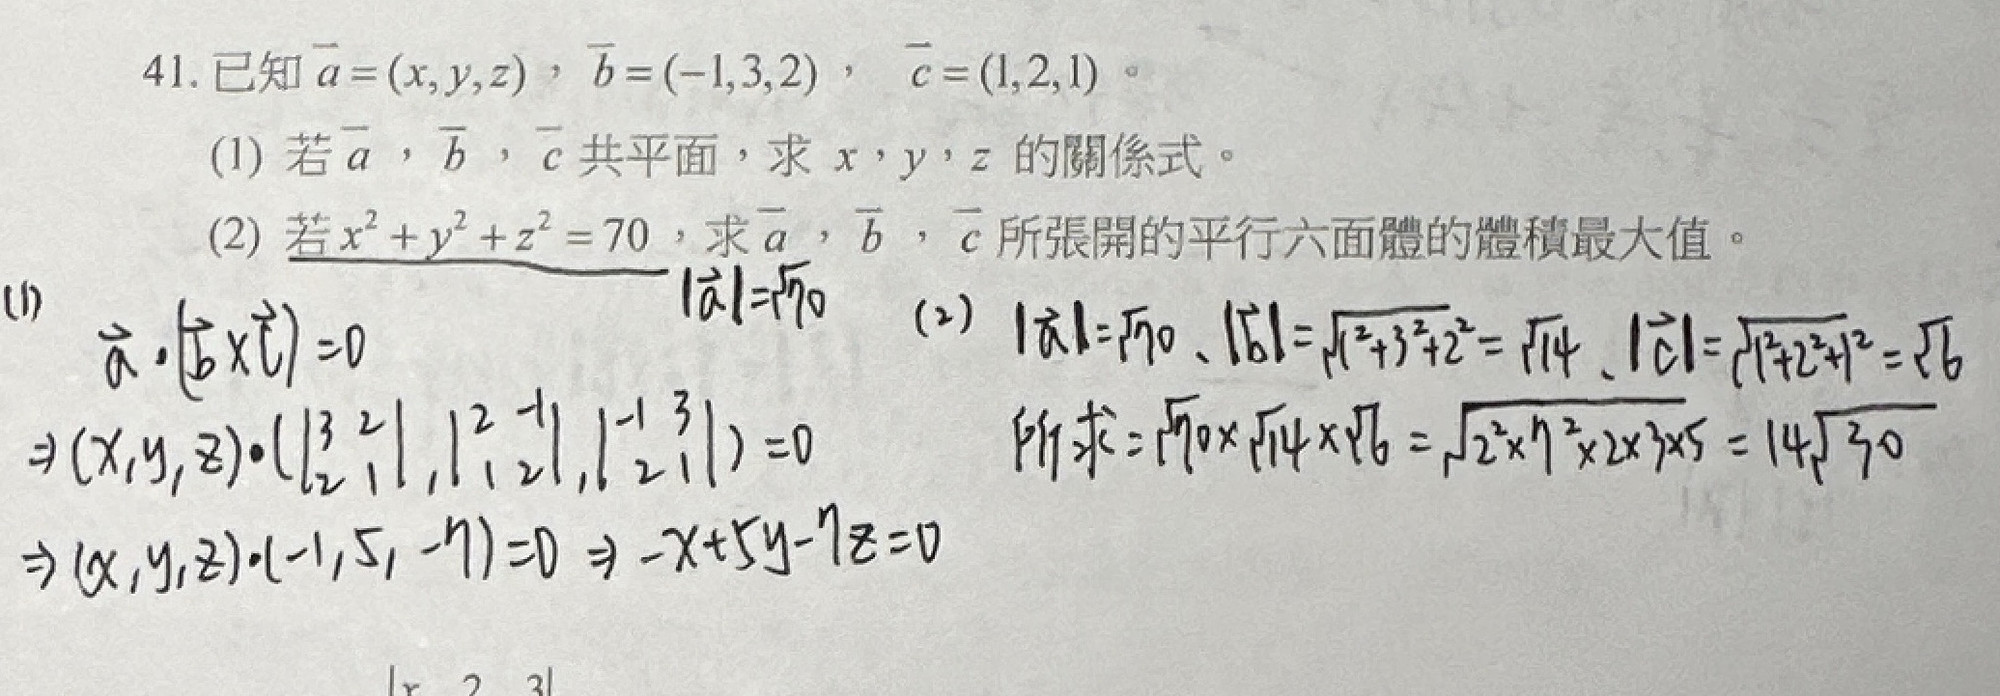 41. 已知 a̅ = (x, y, z)，b̅ = (−1,3,2)，c̅ = (1,2,1)。
(1) 若 a̅，b̅，c̅ 共平面，求 x，y，z 的關係式。
(2) 若 x² + y² + z² = 70，求 a̅，b̅，c̅ 所張開的平行六面體的體積最大值。
|a⃗|=√70
(1)
a⃗·(b⃗×c⃗)=0
⇒(x,y,z)·(|3 2; 2 1|,|2 -1; 1 2|,|-1 3; 2 1|)=0
⇒(x,y,z)·(-1,5,-7)=0 ⇒ -x+5y-7z=0
(2) |a⃗|=√70、|b⃗|=√1²+3²+2²=√14、|c⃗|=√1²+2²+1²=√6
所求=√70×√14×√6=√2²×7²×2×3×5=14√30
|x 2 3|